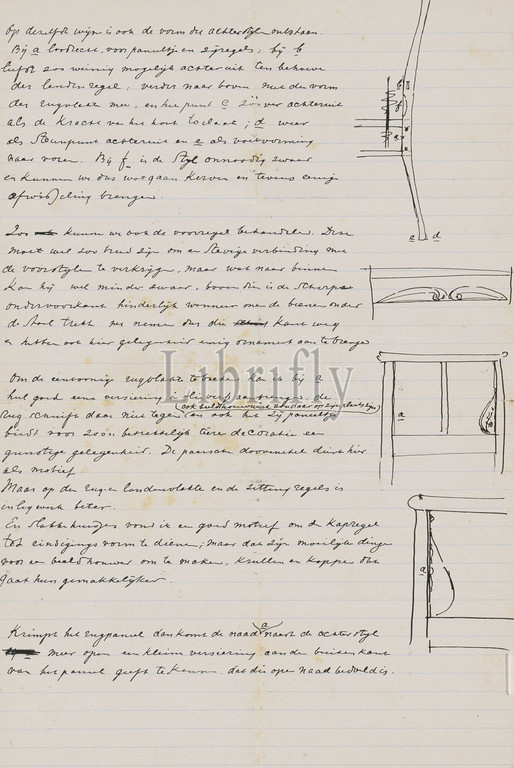 Op dezelfde wijze is ook de vorm der achterstylen ontstaan.
Bij a loodrecht, voor paneeltjen en zijregels; bij b
liefst zoo weinig mogelijk achteruit ten behoeve
der lendenregel; verder naar boven met de vorm
der rugvlakte mee, en het punt c zoover achteruit
als de kracht van het hout toelaat; d weer
als steunpunt achteruit en e als voetvorming
naar voren. Bij f is de styl onnoodig zwaar
en kunnen we dus wat gaan kerven en tevens eenige
afwisseling brengen.
Zoo kunnen we ook de voorregel behandelen. Deze
moet wel zoo breed zijn om een stevige verbinding met
de voorstylen te verkrijgen, maar wat naar binnen
kan hij wel minder zwaar, bovendien is de scherpe
ondervoorkant hinderlijk wanneer men de beenen onder
de stoel trekt. we nemen dus die kant weg
en hebben ook hier gelegenheid eenig ornament aan te brengen
Librifly
Om de eentoonig rugvlakte te breken kan is bij a
het goed eene versiering
rug schuift daar niet tegen en ook het zijpaneeltje
(ook beeldhouwwerk
biedt voor zoo'n betrekkelijk tiere decoratie een
gunstige gelegenheid. De paarsch doovenetel dient hier
als motief.
Maar op den rug en lendenvlakte en de zittingregels is
inlegwerk beter.
En slabbetuitjes vond ik een goed motief om de kapregel
tot eindigings vorm te dienen; maar dat zijn moeilijke dingen
voor een beeldhouwer om te maken, krullen en koppen dat
gaat hun gemakkelijker.
Krimpt het rugpaneel dan komt de naad a naast de achterstyl
meer open een kleine versiering aan de buitenkant
van het paneel geeft te kennen, dat die open naad bedoeld is.
b
f
a
c
e d
a
a